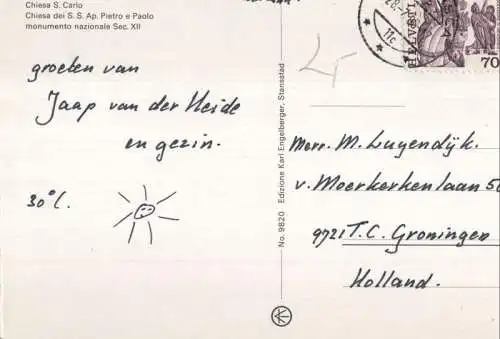 Chiesa S. Carlo
Chiesa dei S. S. Ap. Pietro e Paolo
monumento nazionale Sec. XII
groeten van
Jaap van der Heide
en gezin.
30°C.
No. 9820 Edizione Karl Engelberger, Stansstad
28.
11c
HELVETIA
70
Mevr. M. Luyendijk.
v. Moerkerkenlaan 50
9721 T.C. Groningen
Holland.